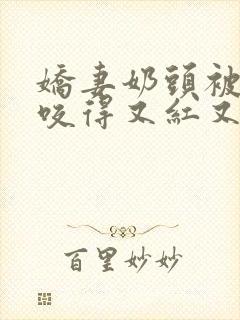 嬌妻奶頭被
咬得又紅又
百里妙妙